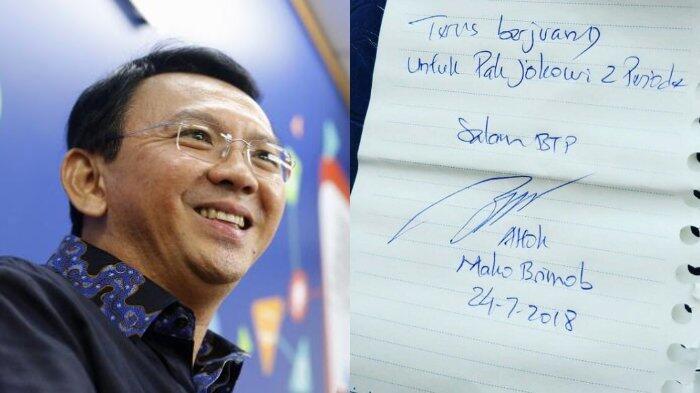 Terus berjuang
untuk Pak Jokowi 2 Periode
Salam BTP
Ahok
Mako Brimob
24-7-2018